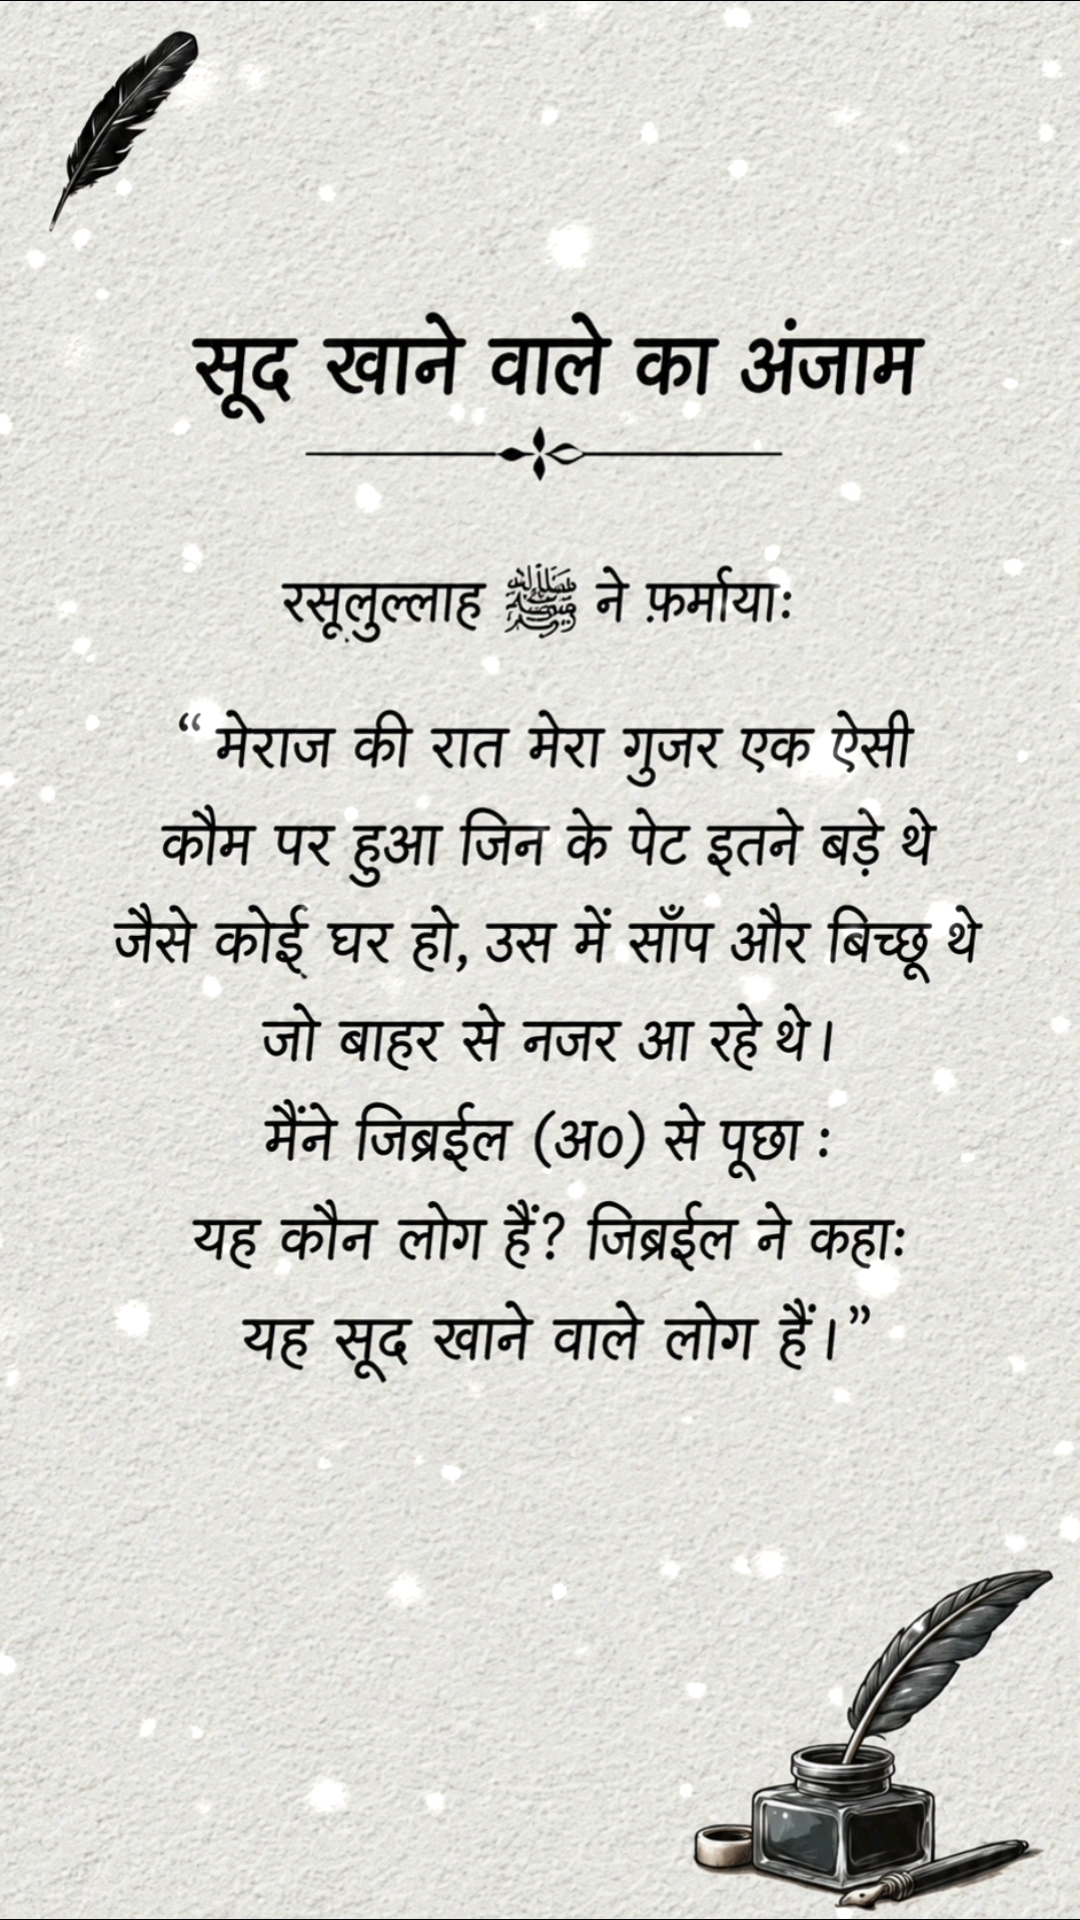 सूद खाने वाले का अंजाम
रसूलुल्लाह ﷺ ने फ़र्माया:
“ मेराज की रात मेरा गुजर एक ऐसी
कौम पर हुआ जिन के पेट इतने बड़े थे
जैसे कोई घर हो, उस में साँप और बिच्छू थे
जो बाहर से नजर आ रहे थे।
मैंने जिब्रईल (अ०) से पूछा :
यह कौन लोग हैं? जिब्रईल ने कहा:
यह सूद खाने वाले लोग हैं।”